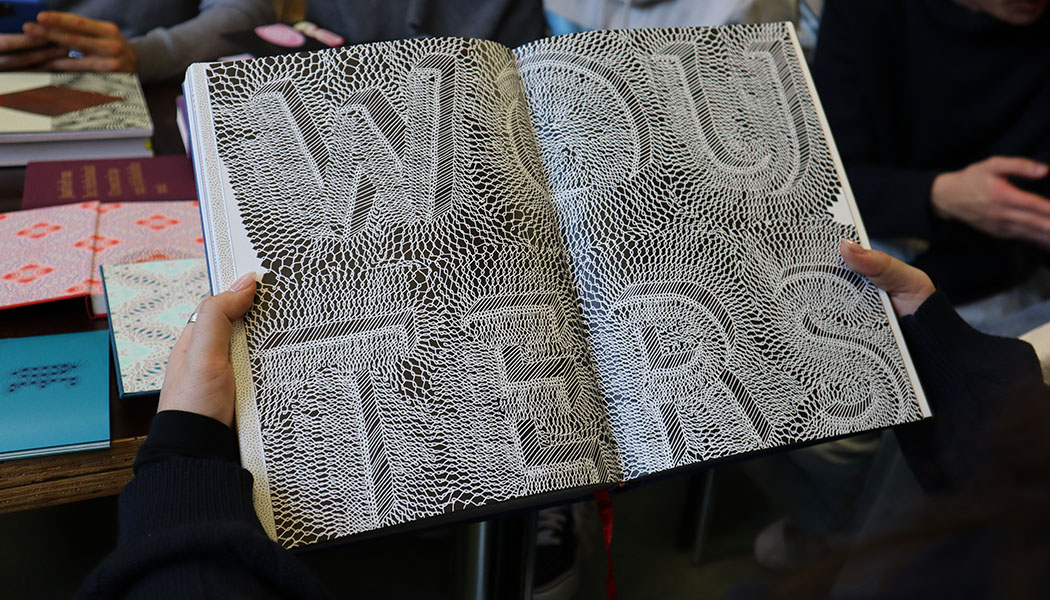 WOU
TERS